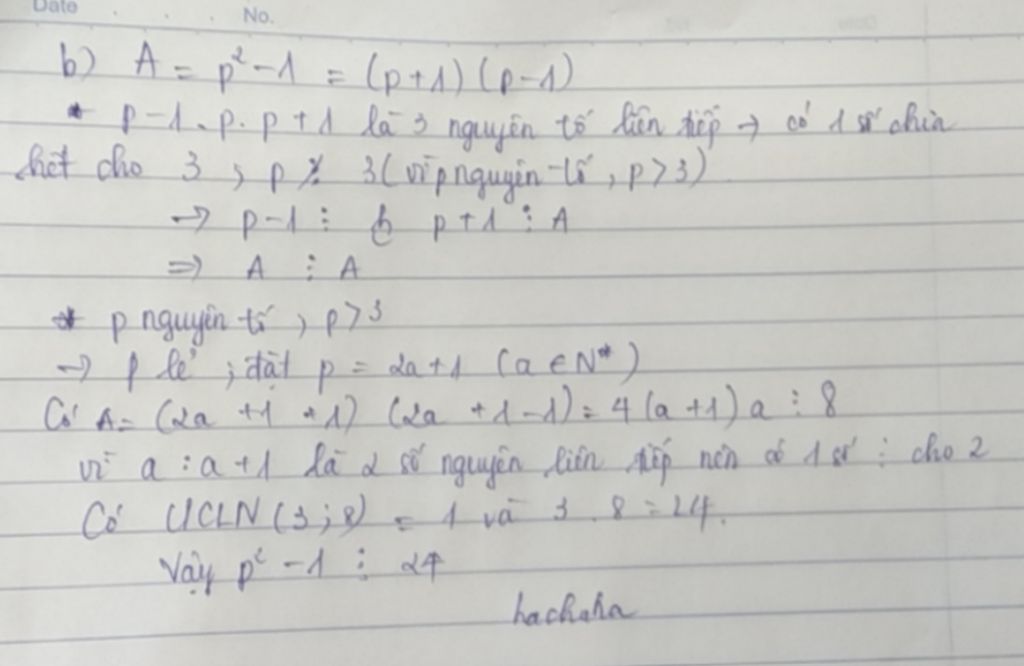 Date No.
b) A = p² - 1 = (p+1) (p-1)
* p-1. p. p+1 là 3 nguyên tố liên tiếp → có 1 số chia
hết cho 3, p ⋮̸ 3 (vì p nguyên tố, p > 3)
→ p-1 ⋮ p+1 ⋮ A
⇒ A ⋮ A
* p nguyên tố, p > 3
→ p lẻ; đặt p = 2a+1 (a ∈ N*)
Có A = (2a +1 +1) (2a +1-1) = 4(a+1)a ⋮ 8
vì a : a+1 là 2 số nguyên liên tiếp nên có 1 số ⋮ cho 2
Có ƯCLN (3; 8) = 1 và 3 . 8 = 24.
Vậy p² - 1 ⋮ 24
hachaha